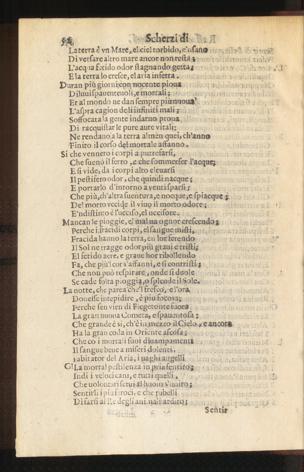 58 Scherzi di
La terra è vn Mare, el ciel torbido, e'usano
Di versare altro mare ancor non resta;
L'acqua fetido odor stagnando getta;
E la terra lo cresce, el aria infetta.
Duran più giorni con nocente pioua
Diluui spauenteuoli, e mortali;
Et al mondo ne dan sempre più nuoua
L'aspra cagion deli infiniti mali;
Soffocata la gente indarno proua
Di racquistar le pure aure vitali;
Ne rendano à la terra almen quei, ch'anno
Finito il corso del mortale affanno.
Si che vennero i corpi à putrefarsi,
Che suenò il ferro, e che sommerse l'acque;
E si vide, da i corpi alto eleuarsi
Il pestifero odor, che quindi nacque;
E portarlo d'intorno à venti sparsi;
Che più, ch'altra suentura, e nocque, e spiacque;
Del morto vccide il viuo il morto odore;
E'ndistinto è l'ucciso, el uccisore.
Mancan le pioggie, e'l mal maggior crescendo;
Perche i fracidi corpi, el sangue misti,
Fracida hanno la terra, en lor ferendo
Il Sol ne tragge odor più graui e tristi;
El fetido aere, e graue hor ribollendo
Fa, che più i cor s'affanni, e si contristi;
Che non può respirare, onde si duole
Se cade folta pioggia, o splende il Sole.
La notte, che parea che'l fresco, e l'ora
Douesse intepidire, è più focosa;
Perche sen vien di Flegetonte fuora
La gran nuoua Cometa, e spauentosa;
Che grande è si, ch'è in mezzo il Cielo, e ancora
Ha la gran coda in Oriente ascosa;
Che co i mortali suoi diuampamenti
Il sangue beue a miseri dolenti.
Gl'abitator del Aria, i vaghi augelli
La mortal pestilenza in pria sentiro;
Indi i veloci cani, e tutti quelli,
Che uolontari serui al huom s'uniro;
Sentirla i più feroci, e che rubelli
Di farsi al Re degli animali ardiro;
Sentir